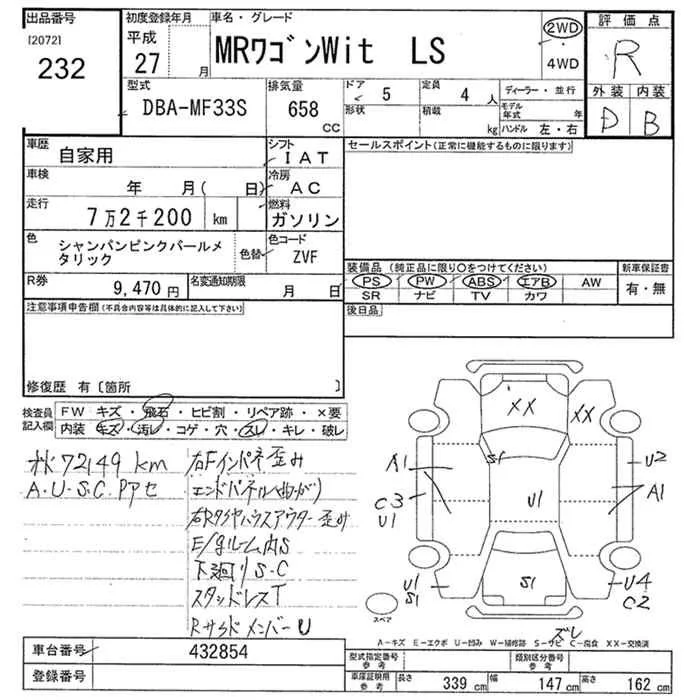 出品番号
[2072]
232
初度登録年月
平成
27 月
車名・グレード
MRワゴンWit LS
2WD
・
4WD
評価点
R
外装 内装
D B
型式
DBA-MF33S
排気量
658
CC
ドア 5
形状
定員 4 人
積載 kg
ディーラー・並行
モデル年式 年
ハンドル 左・右
車歴 自家用
シフト IAT
車検 年 月( 日)
冷房 AC
走行 7万2千200 km
燃料 ガソリン
色 シャンパンピンクパールメタリック
色替
色コード ZVF
R券 9,470円
名変通知期限 月 日
セールスポイント(正常に機能するものに限ります)
装備品(純正品に限り○をつけてください)
PS PW ABS エアB AW
SR ナビ TV カワ
新車保証書
有・無
後日品
注意事項申告欄(不具合内容等は具体的に記入して下さい)
修復歴 有〔箇所 〕
検査員記入欄
FW キズ・飛石・ヒビ割・リペア跡・×要
内装 キズ・汚レ・コゲ・穴・スレ・キレ・破レ
72149 km
A・U・S・C
右Fインパネ歪み
エンドパネル
右Rタイヤハウスアウター歪み
E/gルーム内S
下廻りS・C
スタッドレスT
RサイドメンバーU
XX
XX
S1
A1
U2
C3
U1
U1
A1
U1
S1
S1
U4
C2
スペア
ズレ
A-キズ E-エクボ U-凹み W-補修跡 S-サビ C-腐食 XX-交換済
車台番号 432854
登録番号
型式指定番号
参考
類別区分番号
参考
車庫証明用
参考
長さ 339 cm
幅 147 cm
高さ 162 cm